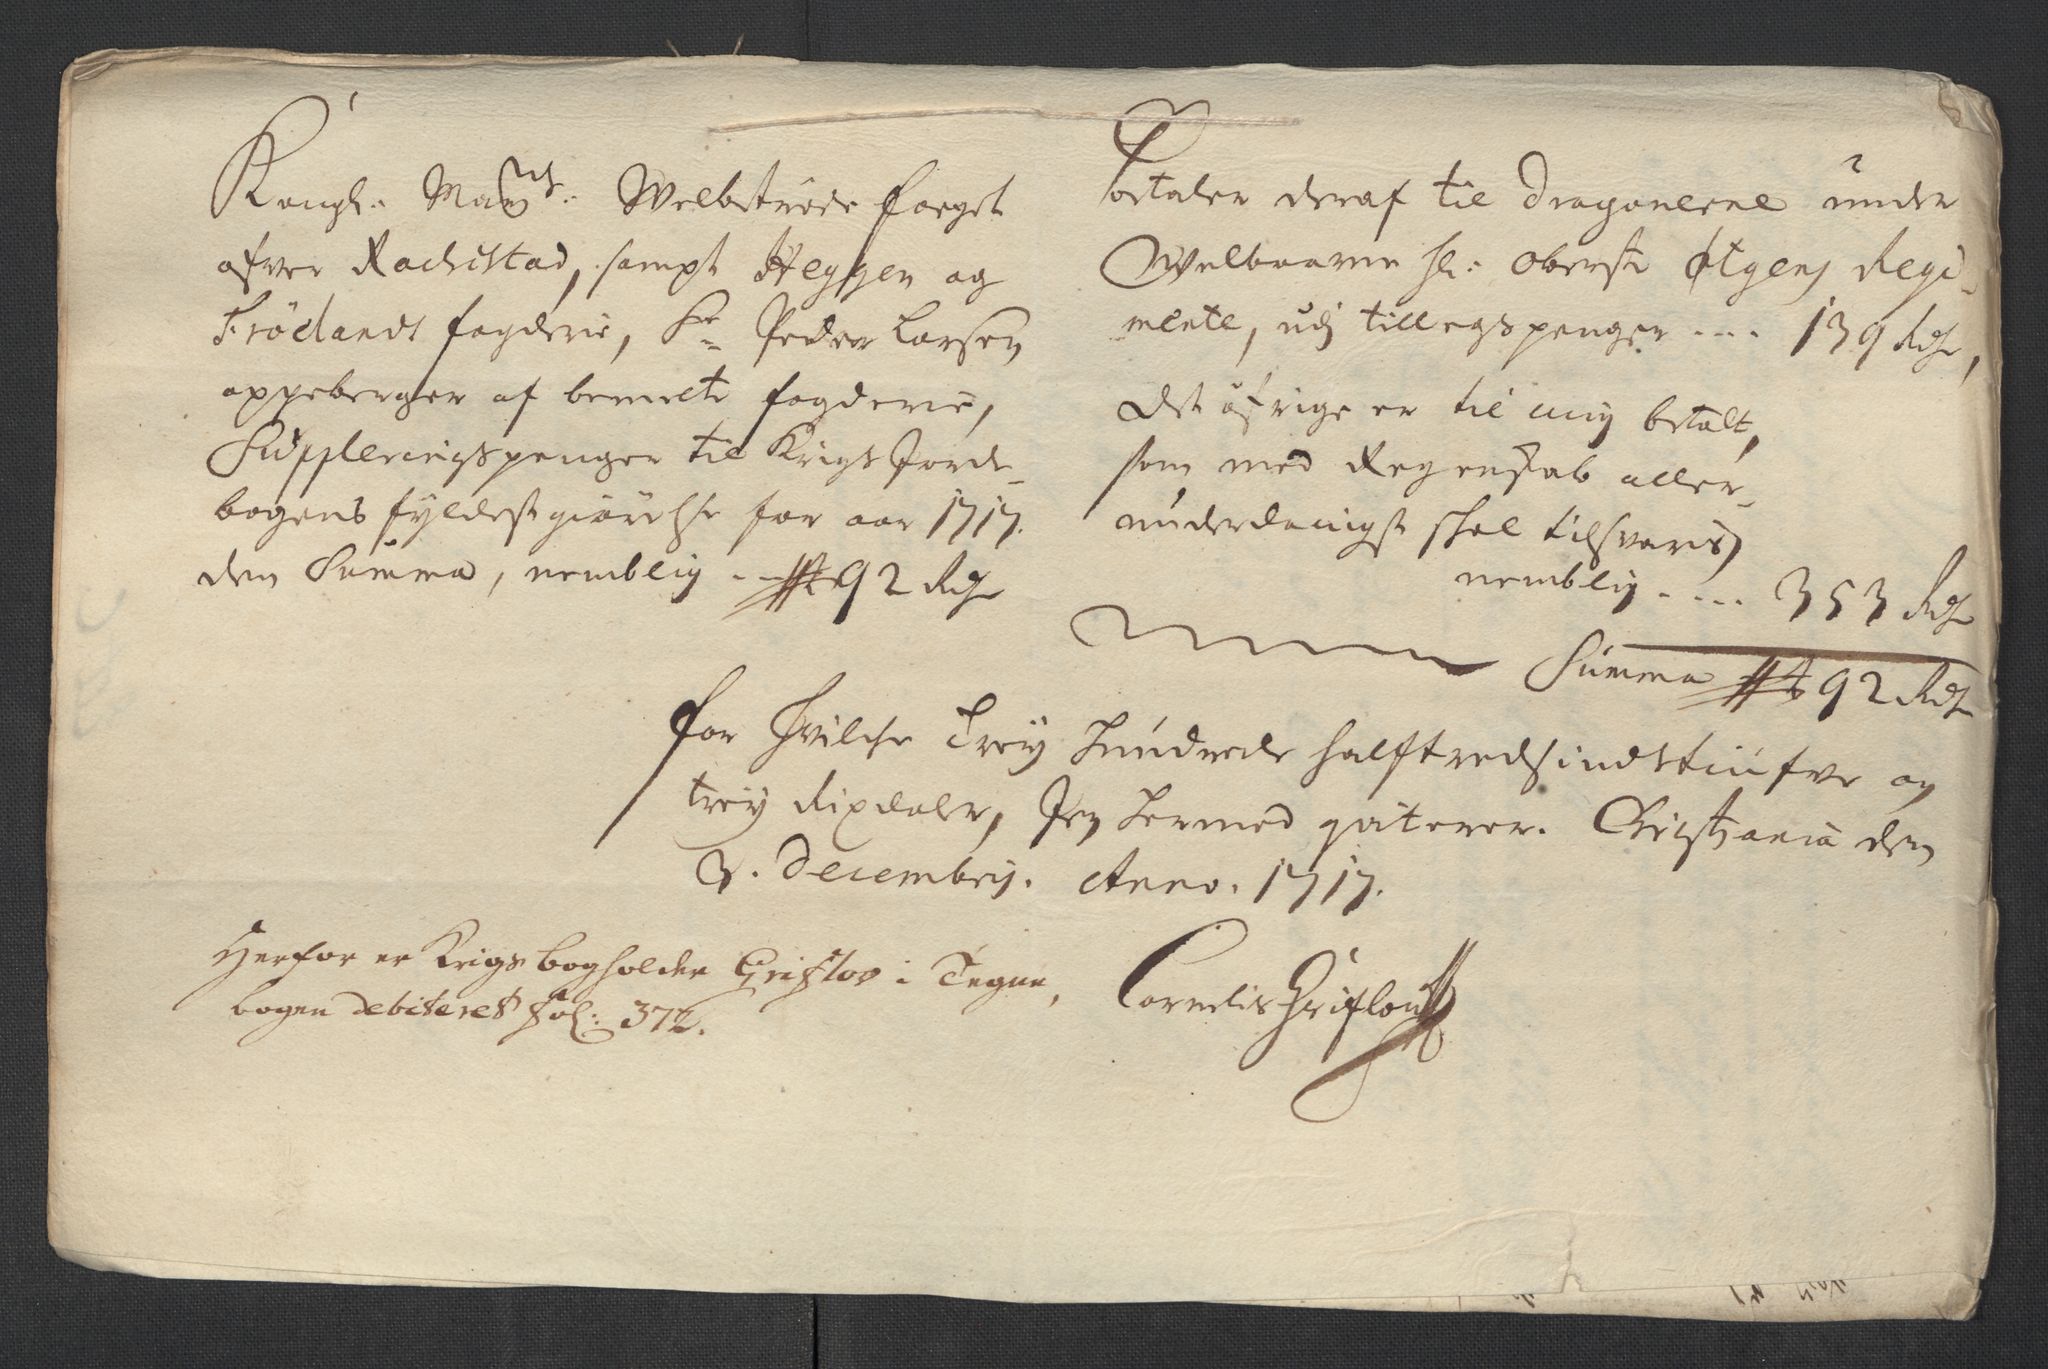 Kongl: May:ts: Welbetroede foeget
ofver Rachestad, sampt Heggen og
Frölandts fogderie, Sr Peder Larsen
oppeberger af bemelte fogderie,
Supplerings penger til Krigs Jorde-
bogens fyldest giörelse for aar 1717.
den Summa, nemblig - 492 Rdr
betaler deraf til Dragonerne under
Welbaarne Hr: Oberste Øtgens Regi-
mente, udj tillegspenger .... 139 Rdr,
Det öfrige er til mig betalt,
som med Regenskab aller-
underdanigst skal tilsvaris,
nemblig .... 353 Rdr
Summa 492 Rdr
for hvilche Trey hundrede halftredsindstiufve og
trey Rixdaler, Jeg hermed qviterer. Christiania den
3. Decembris. Anno. 1717.
Cornelis Griflou
Herfor er Krigs bogholder Griflou i Tegne,
bogen debiteret fol: 372.